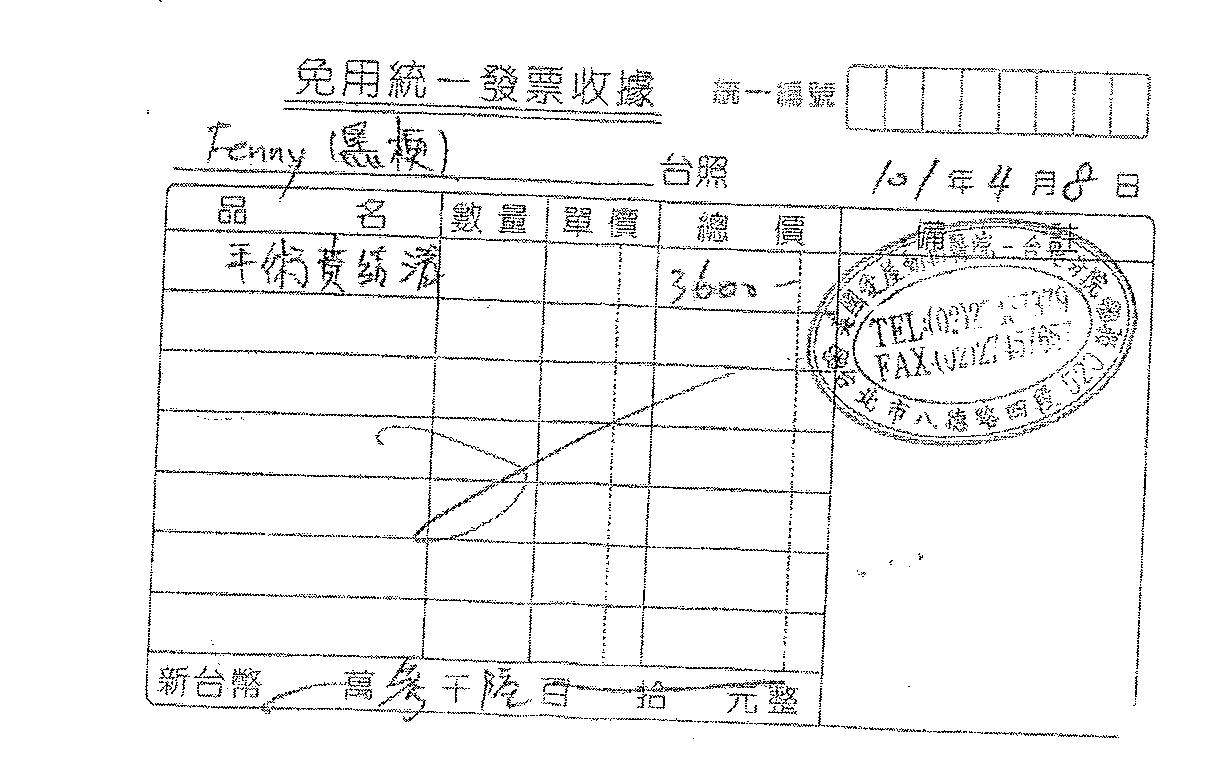 免用統一發票收據
統一編號
Fenny (黑梗)
台照
101年4月8日
品名 數量 單價 總價 備註
手術費結清 3600.-
TEL:(02)2
FAX:(02)27457687
台北市八德路四段 520
新台幣 萬參千陸百 拾 元整